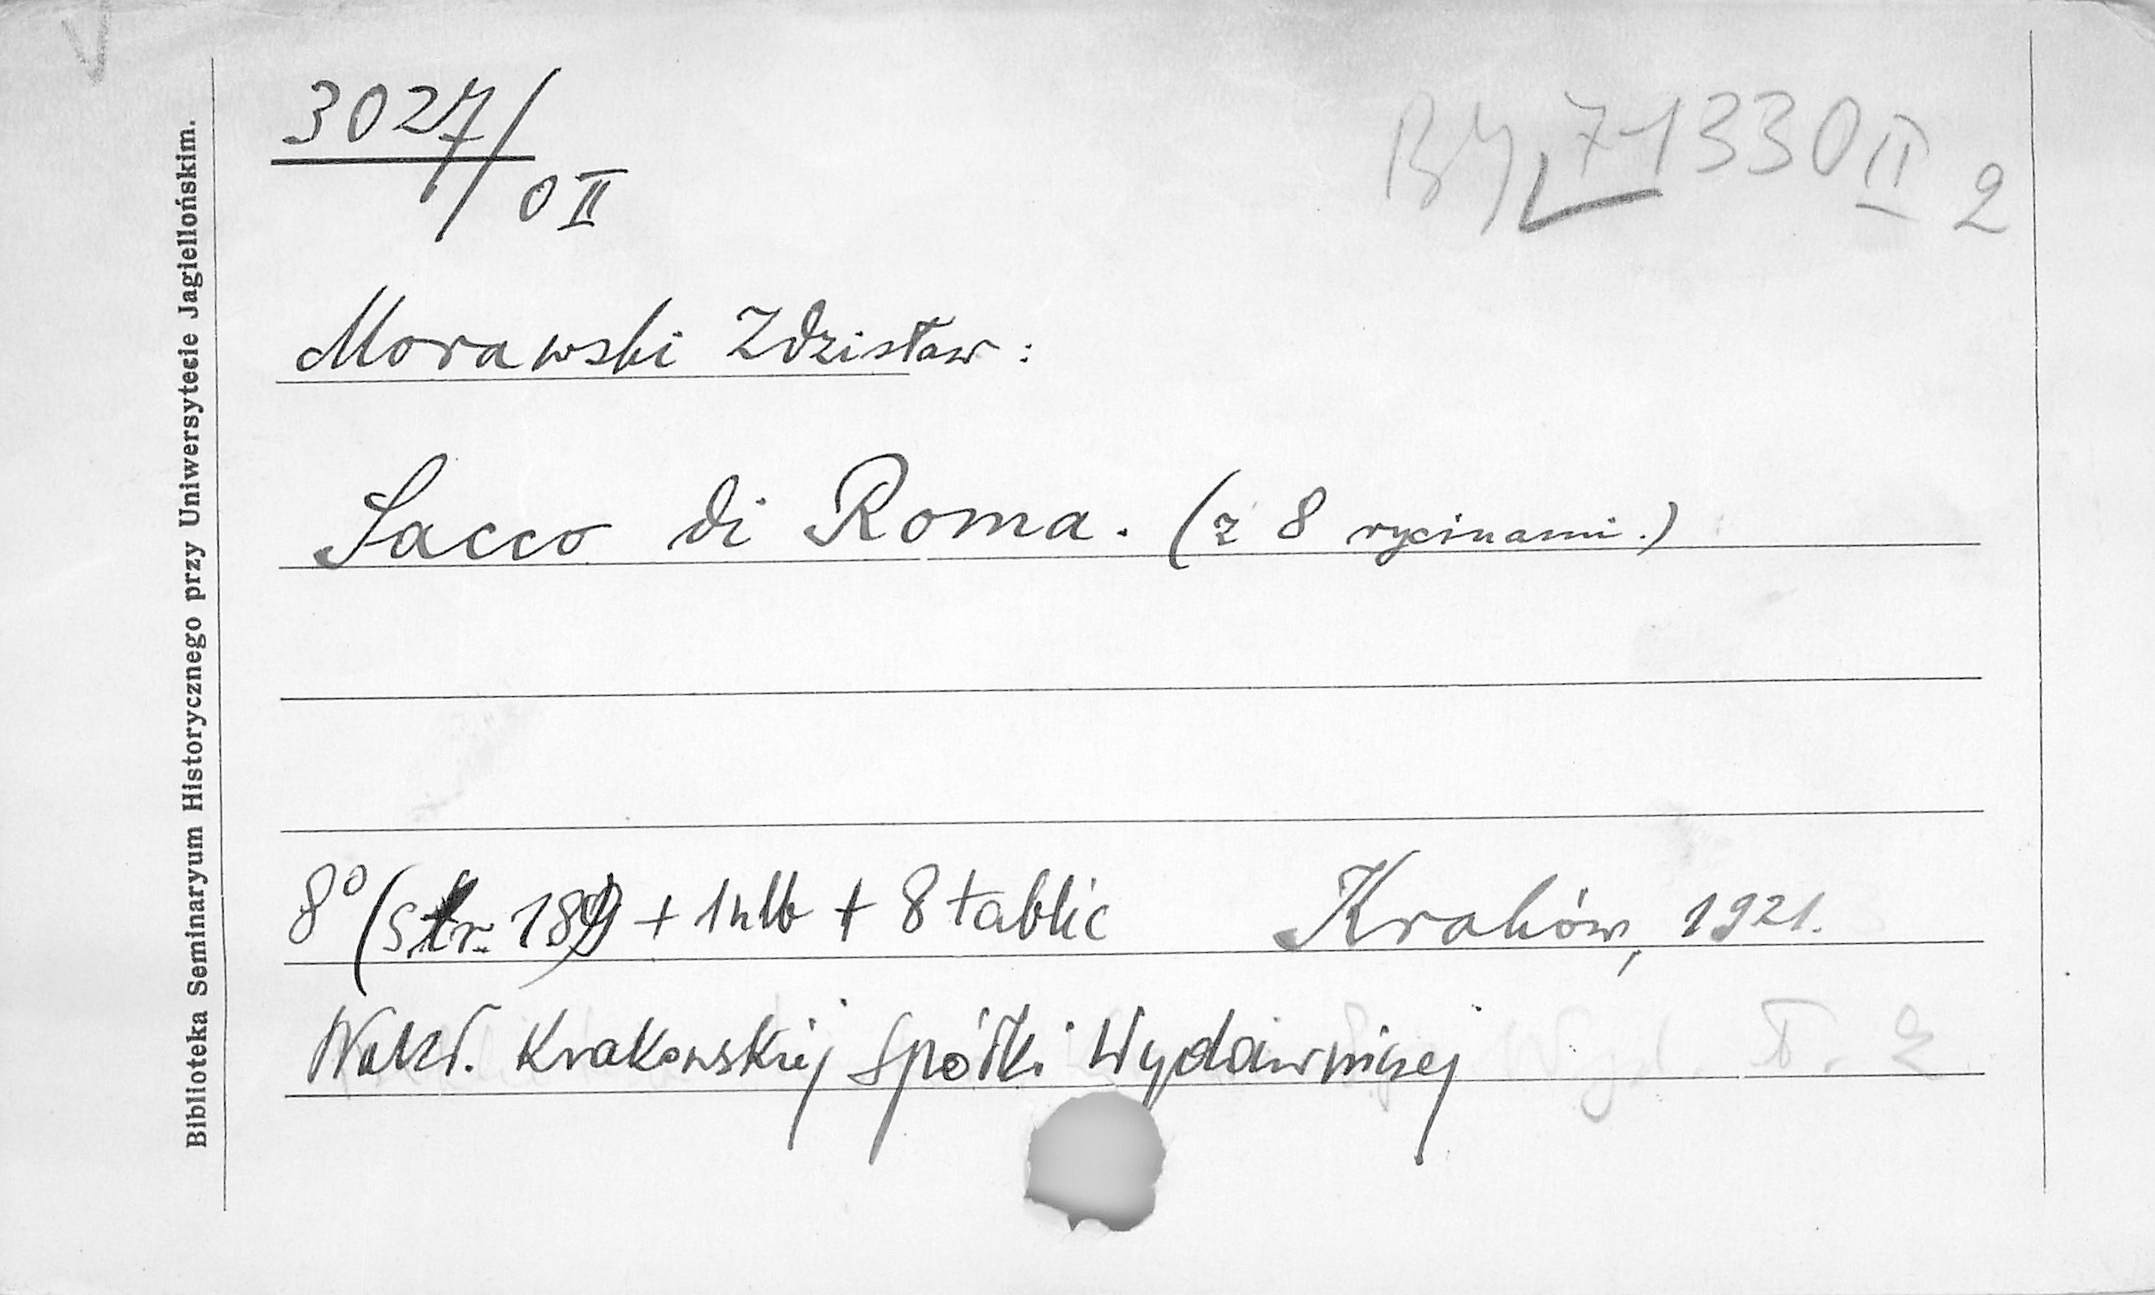 3027/
0 II
BJ 71330 II 2
Morawski Zdzisław:
Sacco di Roma. (z 8 rycinami.)
8° (str. 189 + 1 nlb + 8 tablic Kraków, 1921.
Nakł. Krakowskiej Spółki Wydawniczej
Biblioteka Seminaryum Historycznego przy Uniwersytecie Jagiellońskim.